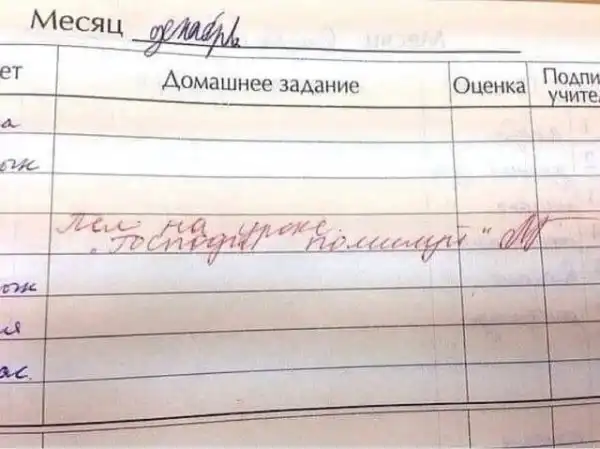 Месяц декабрь
ет Домашнее задание Оценка Подпи
учите
а
Пел на уроке
"Господи помилуй"
ая